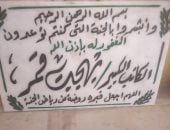 بسم الله الرحمن الرحيم
وأبشروا بالجنة التي كنتم توعدون
المغفور له بإذن الله
الكاتب الكبير
اللهم اجعل قبره روضة من رياض الجنة